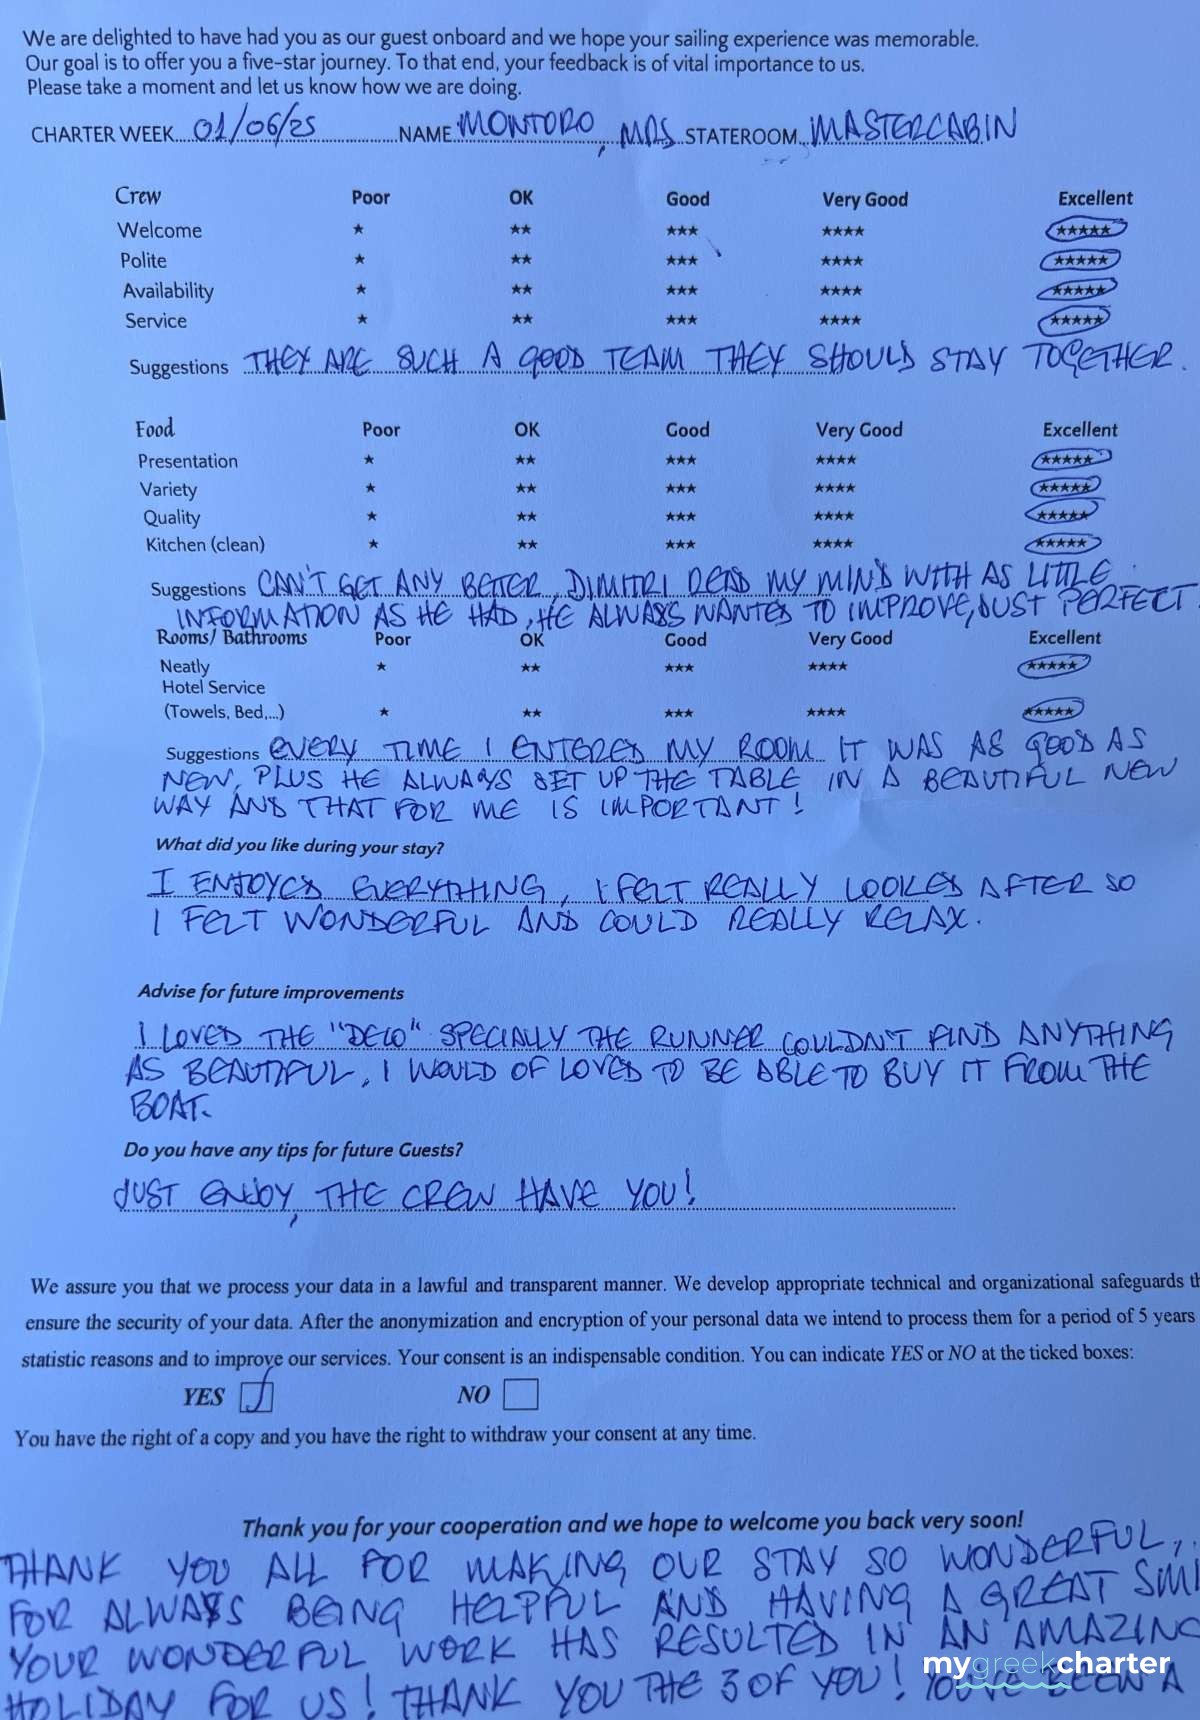 We are delighted to have had you as our guest onboard and we hope your sailing experience was memorable.
Our goal is to offer you a five-star journey. To that end, your feedback is of vital importance to us.
Please take a moment and let us know how we are doing.
CHARTER WEEK 01/06/25 NAME MONTORO, MRS STATEROOM MASTERCABIN
Crew Poor OK Good Very Good Excellent
Welcome ★ ★★ ★★★ ★★★★ ★★★★★
Polite ★ ★★ ★★★ ★★★★ ★★★★★
Availability ★ ★★ ★★★ ★★★★ ★★★★★
Service ★ ★★ ★★★ ★★★★ ★★★★★
Suggestions THEY ARE SUCH A GOOD TEAM THEY SHOULD STAY TOGETHER.
Food Poor OK Good Very Good Excellent
Presentation ★ ★★ ★★★ ★★★★ ★★★★★
Variety ★ ★★ ★★★ ★★★★ ★★★★★
Quality ★ ★★ ★★★ ★★★★ ★★★★★
Kitchen (clean) ★ ★★ ★★★ ★★★★ ★★★★★
Suggestions CAN'T GET ANY BETTER, DIMITRI READ MY MIND WITH AS LITTLE
INFORMATION AS HE HAD, HE ALWAYS WANTED TO IMPROVE, JUST PERFECT.
Rooms/ Bathrooms Poor OK Good Very Good Excellent
Neatly ★ ★★ ★★★ ★★★★ ★★★★★
Hotel Service
(Towels, Bed,...) ★ ★★ ★★★ ★★★★ ★★★★★
Suggestions EVERY TIME I ENTERED MY ROOM IT WAS AS GOOD AS
NEW, PLUS HE ALWAYS SET UP THE TABLE IN A BEAUTIFUL NEW
WAY AND THAT FOR ME IS IMPORTANT!
What did you like during your stay?
I ENJOYED EVERYTHING, I FELT REALLY LOOKED AFTER SO
I FELT WONDERFUL AND COULD REALLY RELAX.
Advise for future improvements
I LOVED THE "DECO" SPECIALLY THE RUNNER COULDN'T FIND ANYTHING
AS BEAUTIFUL, I WOULD OF LOVED TO BE ABLE TO BUY IT FROM THE
BOAT.
Do you have any tips for future Guests?
JUST ENJOY, THE CREW HAVE YOU!
We assure you that we process your data in a lawful and transparent manner. We develop appropriate technical and organizational safeguards th
ensure the security of your data. After the anonymization and encryption of your personal data we intend to process them for a period of 5 years
statistic reasons and to improve our services. Your consent is an indispensable condition. You can indicate YES or NO at the ticked boxes:
YES NO
You have the right of a copy and you have the right to withdraw your consent at any time.
Thank you for your cooperation and we hope to welcome you back very soon!
THANK YOU ALL FOR MAKING OUR STAY SO WONDERFUL,
FOR ALWAYS BEING HELPFUL AND HAVING A GREAT SMI
YOUR WONDERFUL WORK HAS RESULTED IN AN AMAZING
HOLIDAY FOR US! THANK YOU THE 3 OF YOU! YOU'VE BEEN A
mygreekcharter